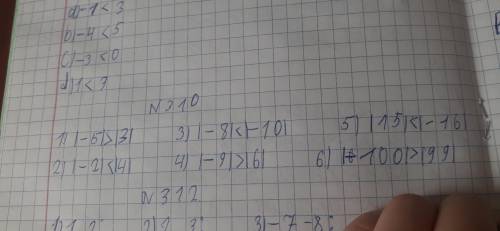 a) -1 < 3
b) -4 < 5
c) -3 < 0
d) 1 < 3
N 310
1) |-5|>|3| 3) |-8|<|-10| 5) |15|<|-16|
2) |-2|<|4| 4) |-9|>|6| 6) |-100|>|99|
N 312
3) -7 -8;